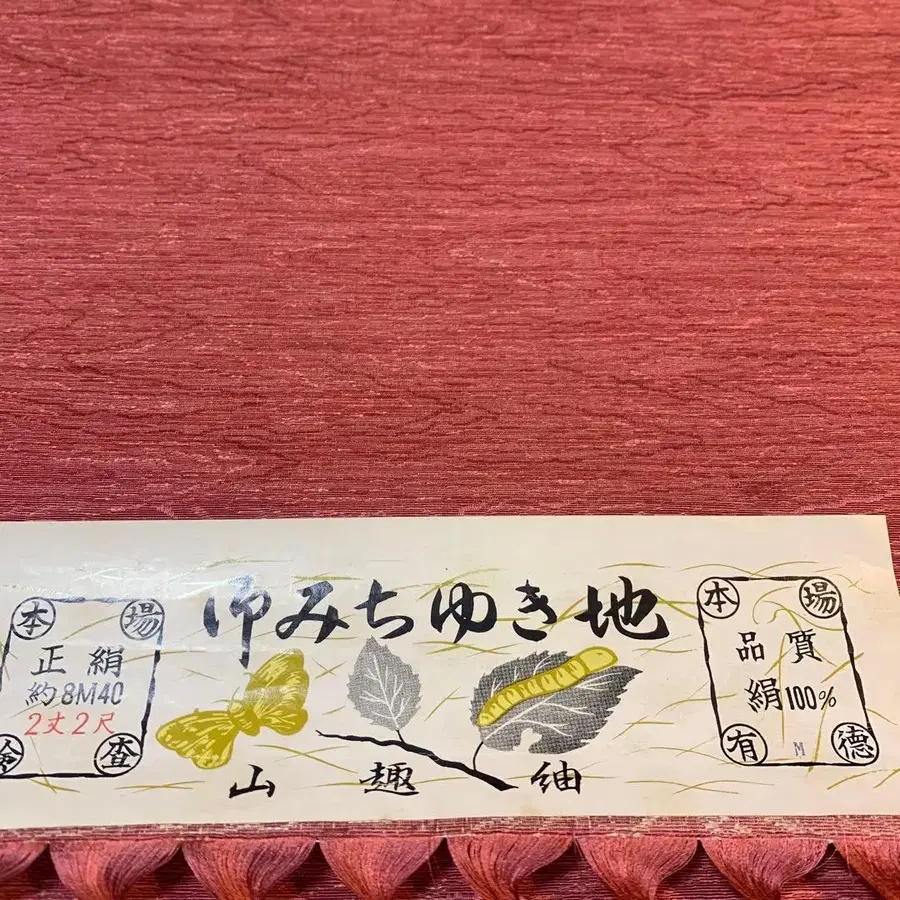 御みちゆき地
山趣紬
本場
正絹
約8M40
2丈2尺
査
本場
品質
絹100%
M
有徳